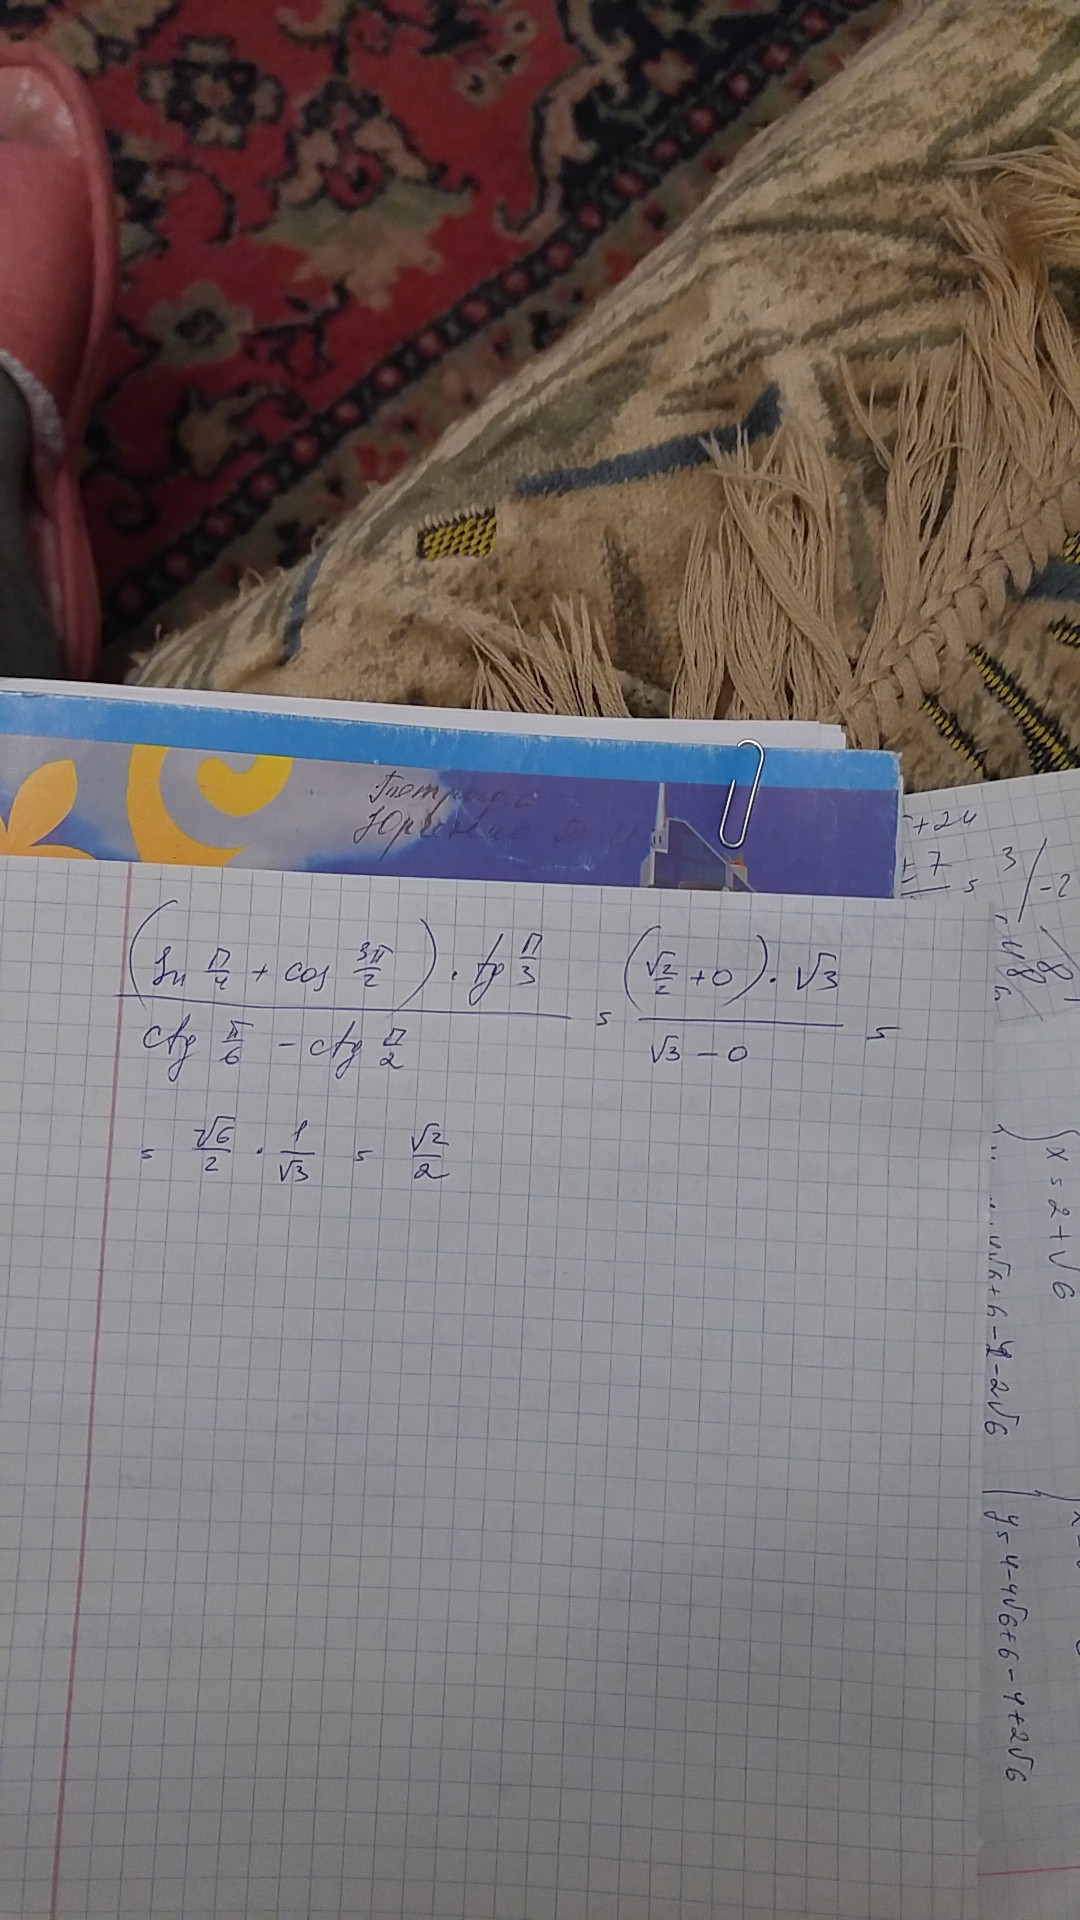 (sin π/4 + cos 3π/2) · tg π/3 / (ctg π/6 - ctg π/2) = (√2/2 + 0) · √3 / (√3 - 0) =
= √6/2 · 1/√3 = √2/2
+24
± 7 = 3 / -2
{ x = 2 + √6
4√6 + 6 - 4 - 2√6
{ y = 4 - 4√6 + 6 - 4 + 2√6